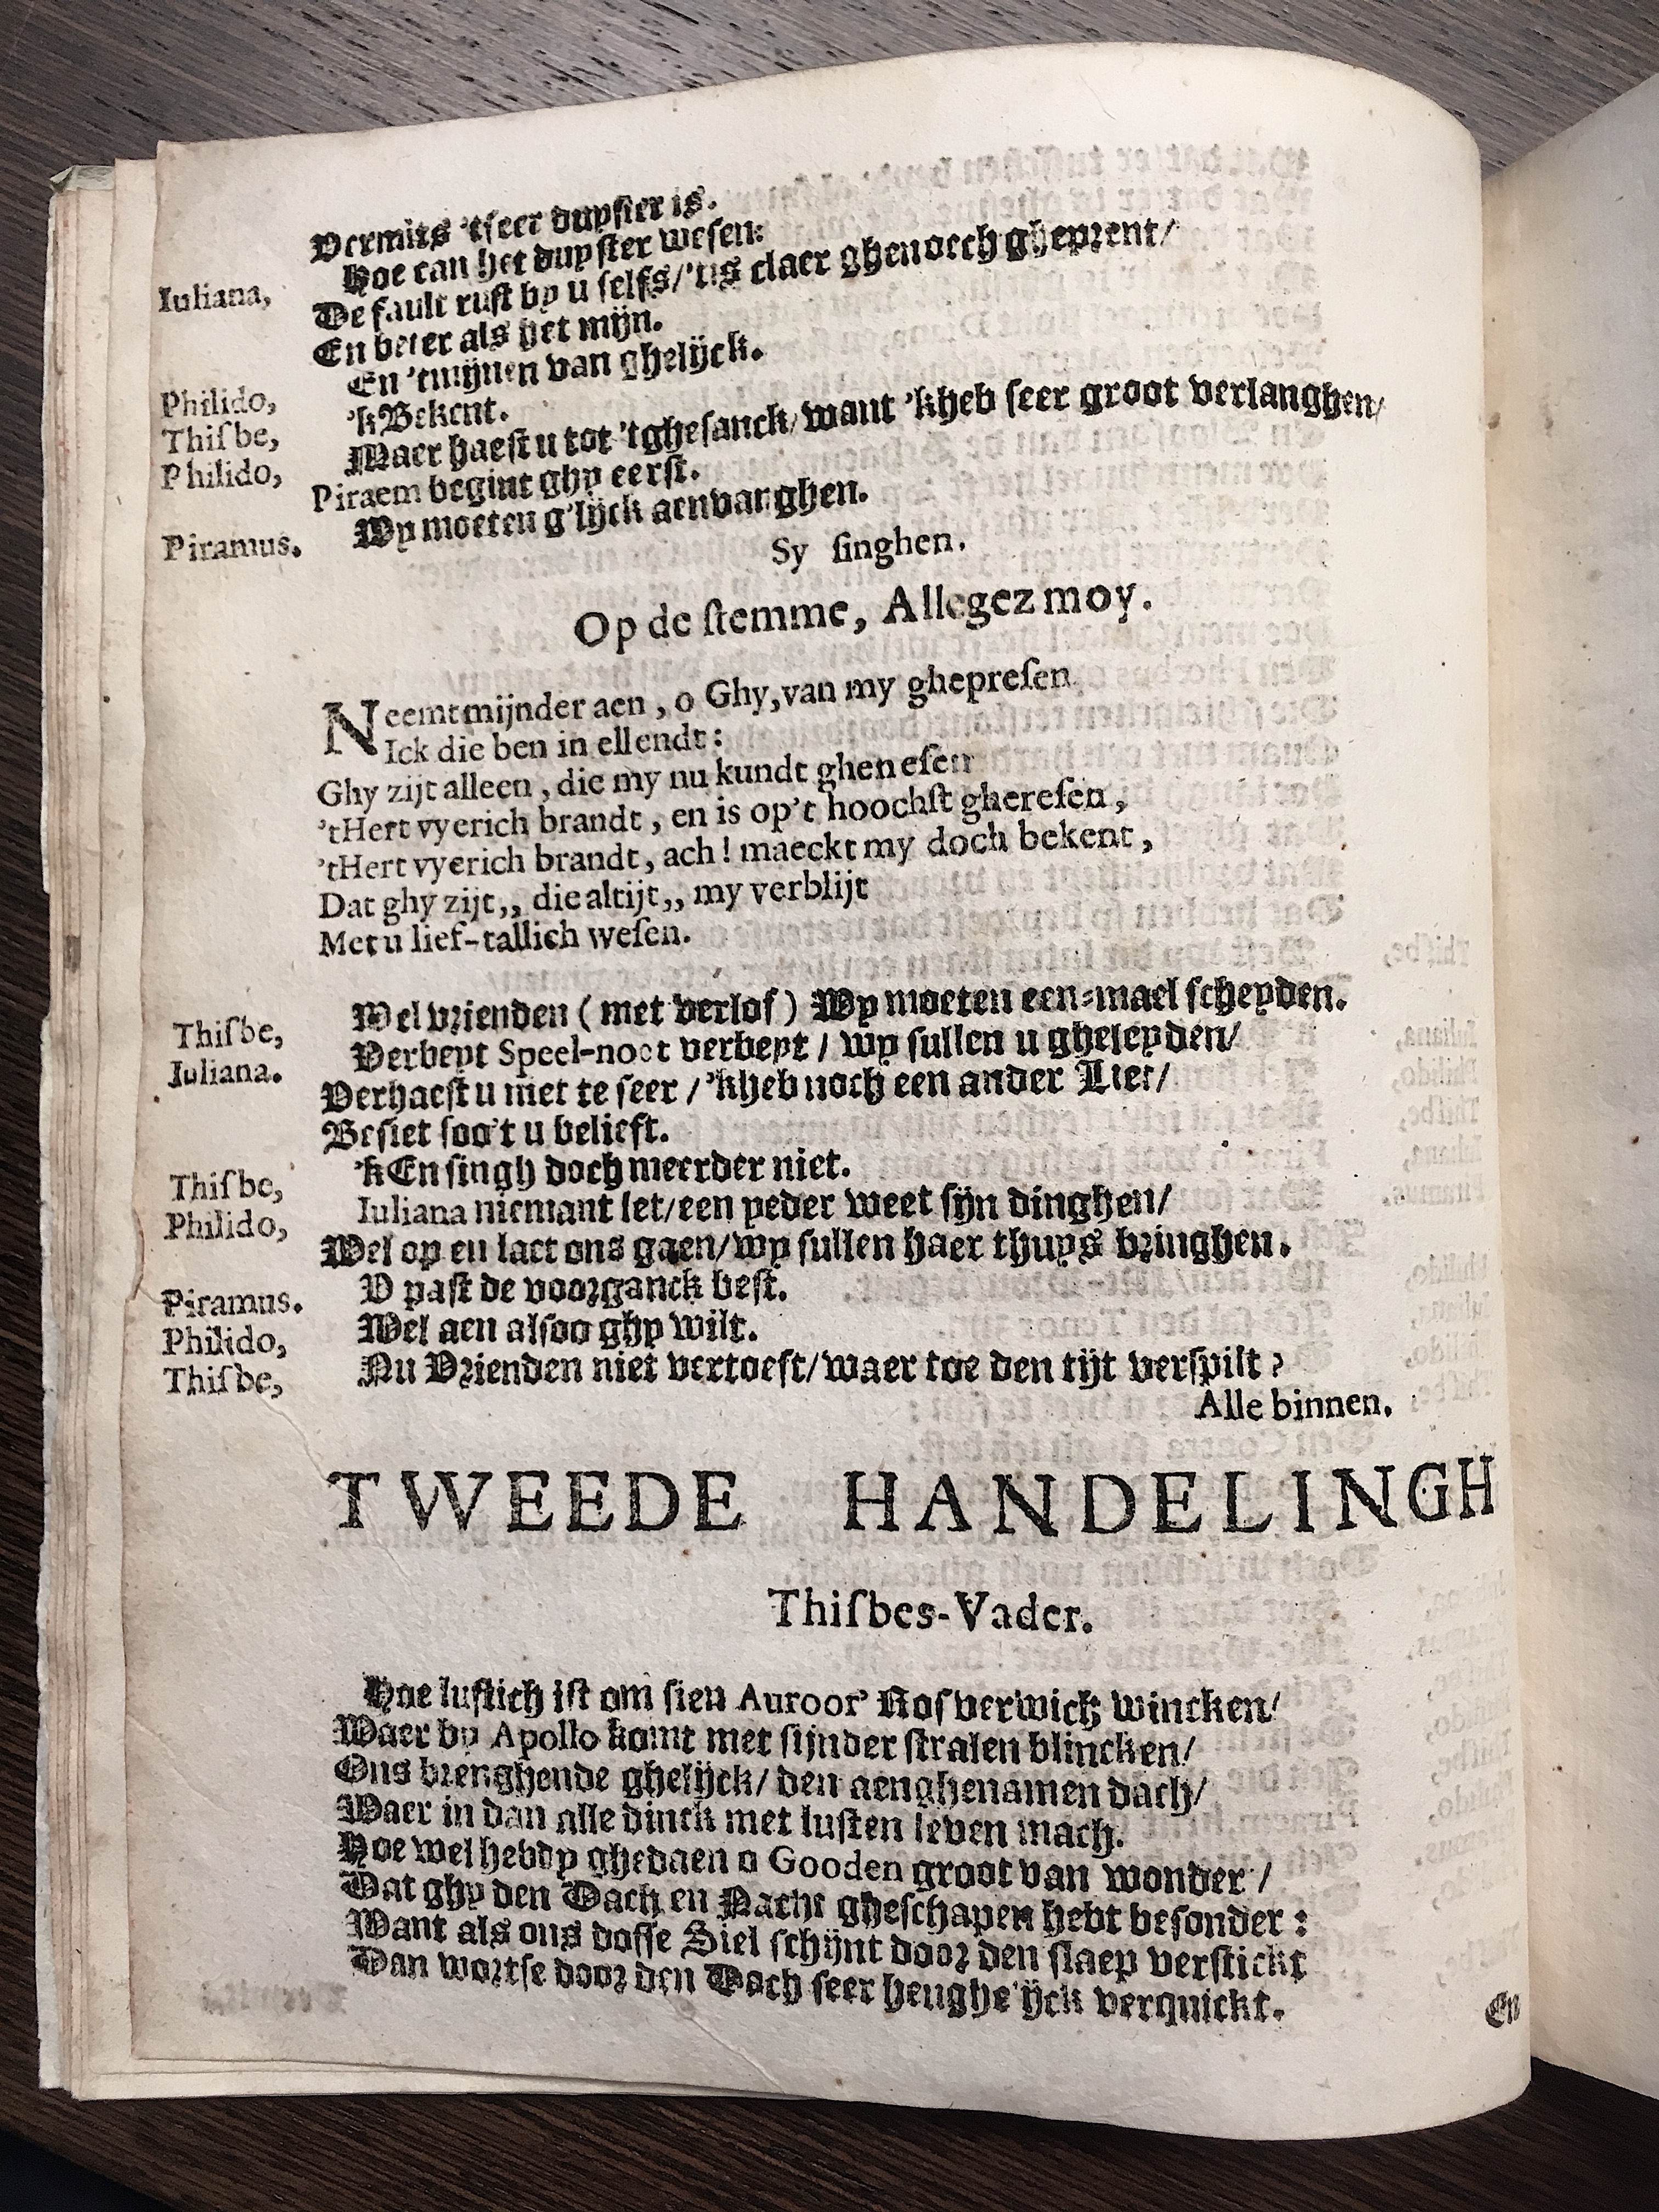 Vermits 'tseer duyster is.
Iuliana, Hoe can het duyster wesen:
De fault rust by u selfs/'tis claer ghenoech gheprent/
En beter als het mijn.
Philido, En 'tmijnen van ghelijck.
Thisbe, 'kBekent.
Philido, Maer haest u tot 'tghesanck/want 'kheb seer groot verlanghen/
Piraem begint ghy eerst.
Piramus. Wy moeten g'lijck aenvanghen.
Sy singhen.
Op de stemme, Allegez moy.
Neemt mijnder aen, o Ghy, van my ghepresen
Ick die ben in ellendt:
Ghy zijt alleen, die my nu kundt ghenesen
'tHert vyerich brandt, en is op't hoochst gheresen,
'tHert vyerich brandt, ach! maeckt my doch bekent,
Dat ghy zijt,, die altijt,, my verblijt
Met u lief-tallich wesen.
Thisbe, Wel vrienden (met verlof) Wy moeten een-mael scheyden.
Iuliana. Verbeyt Speel-noot verbeyt/ wy sullen u gheleyden/
Verhaest u niet te seer/'kheb noch een ander Lier/
Besiet soo't u belieft.
Thisbe, 'kEn singh doch meerder niet.
Philido, Iuliana niemant let/een yeder weet sijn dinghen/
Wel op en laet ons gaen/wy sullen haer thuys bringhen.
Piramus. V past de voorganck best.
Philido, Wel aen alsoo ghy wilt.
Thisbe, Nu Vrienden niet vertoeft/waer toe den tijt verspilt?
Alle binnen.
TWEEDE HANDELINGH
Thisbes-Vader.
Hoe lustich ist om sien Auroor' Rosverwich wincken/
Waer by Apollo komt met sijnder stralen blincken/
Ons brenghende ghelijck/ den aenghenamen dach/
Waer in dan alle dinck met lusten leven mach.
Hoe wel hebdy ghedaen o Gooden groot van wonder/
Dat ghy den Dach en Nacht gheschapen hebt besonder:
Want als ons doffe Siel schijnt door den slaep verstickt
Dan wortse door den Dach seer heughe'ijck verquickt.
En